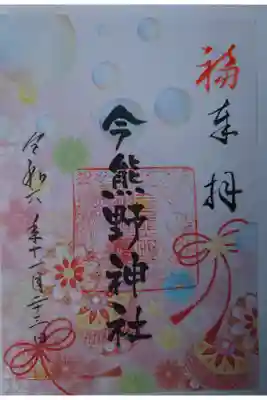 福奉拝
今熊野神社
令和六年十一月二十三日